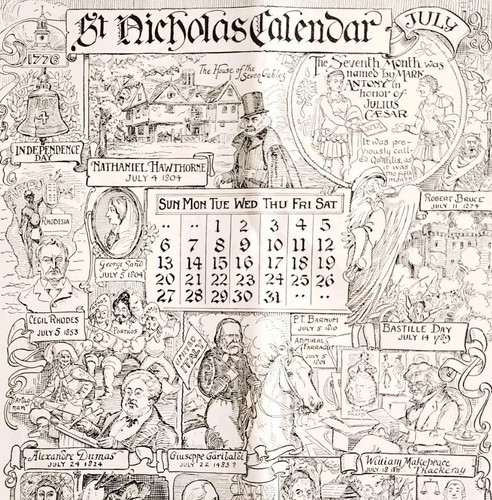 St Nicholas Calendar
JULY
1776
INDEPENDENCE
DAY
The House of the
Seven Gables
NATHANIEL HAWTHORNE
JULY 4 1804
The Seventh Month was
named by MARK
ANTONY in
honor of
JULIUS
CÆSAR
It was pre-
viously call-
ed Quintilis, as
it was
the fifth
month
SUN MON TUE WED THU FRI SAT
.. .. 1 2 3 4 5
6 7 8 9 10 11 12
13 14 15 16 17 18 19
20 21 22 23 24 25 26
27 28 29 30 31 .. ..
RHODESIA
CECIL RHODES
JULY 5 1853
George Sand
JULY 5 1804
PORTHOS
ROBERT BRUCE
JULY 11 1274
P.T. BARNUM
JULY 5 1810
ADMIRAL
FARRAGUT
JULY 5
1801
BASTILLE DAY
JULY 14 1789
Alexandre Dumas
JULY 24 1824
Giuseppe Garibaldi
JULY 22 1483?
William Makepeace
Thackeray
JULY 18 1811